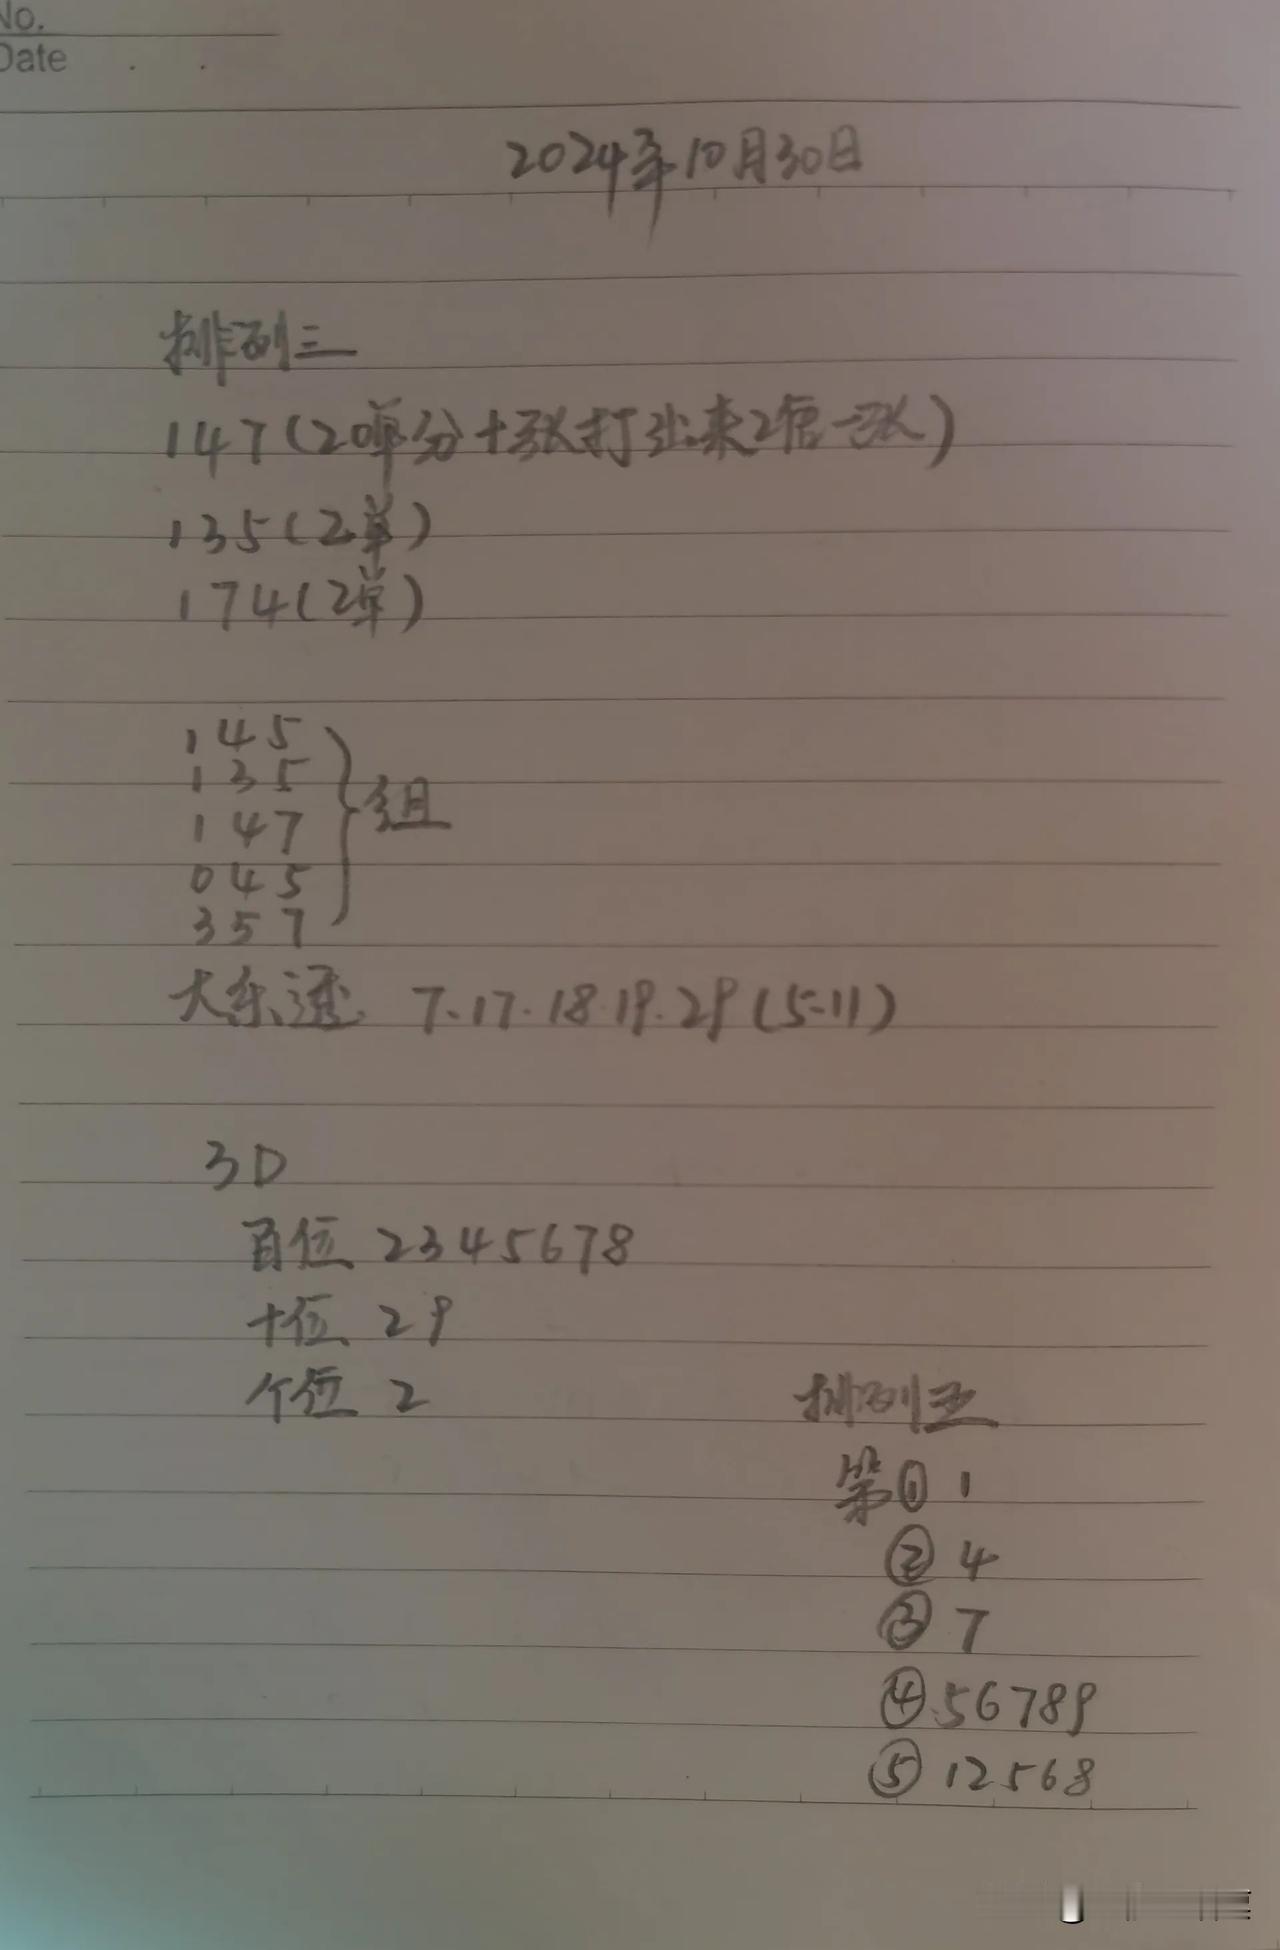 No.
Date . .
2024年10月30日
排列三
147(20单分十张打出来2倍一张)
135(2单)
174(2单)
145
135
147 组
045
357
大乐透 7.17.18.19.29(5-11)
3D
百位 2345678
十位 29
个位 2
排列五
第① 1
② 4
③ 7
④ 56789
⑤ 12568